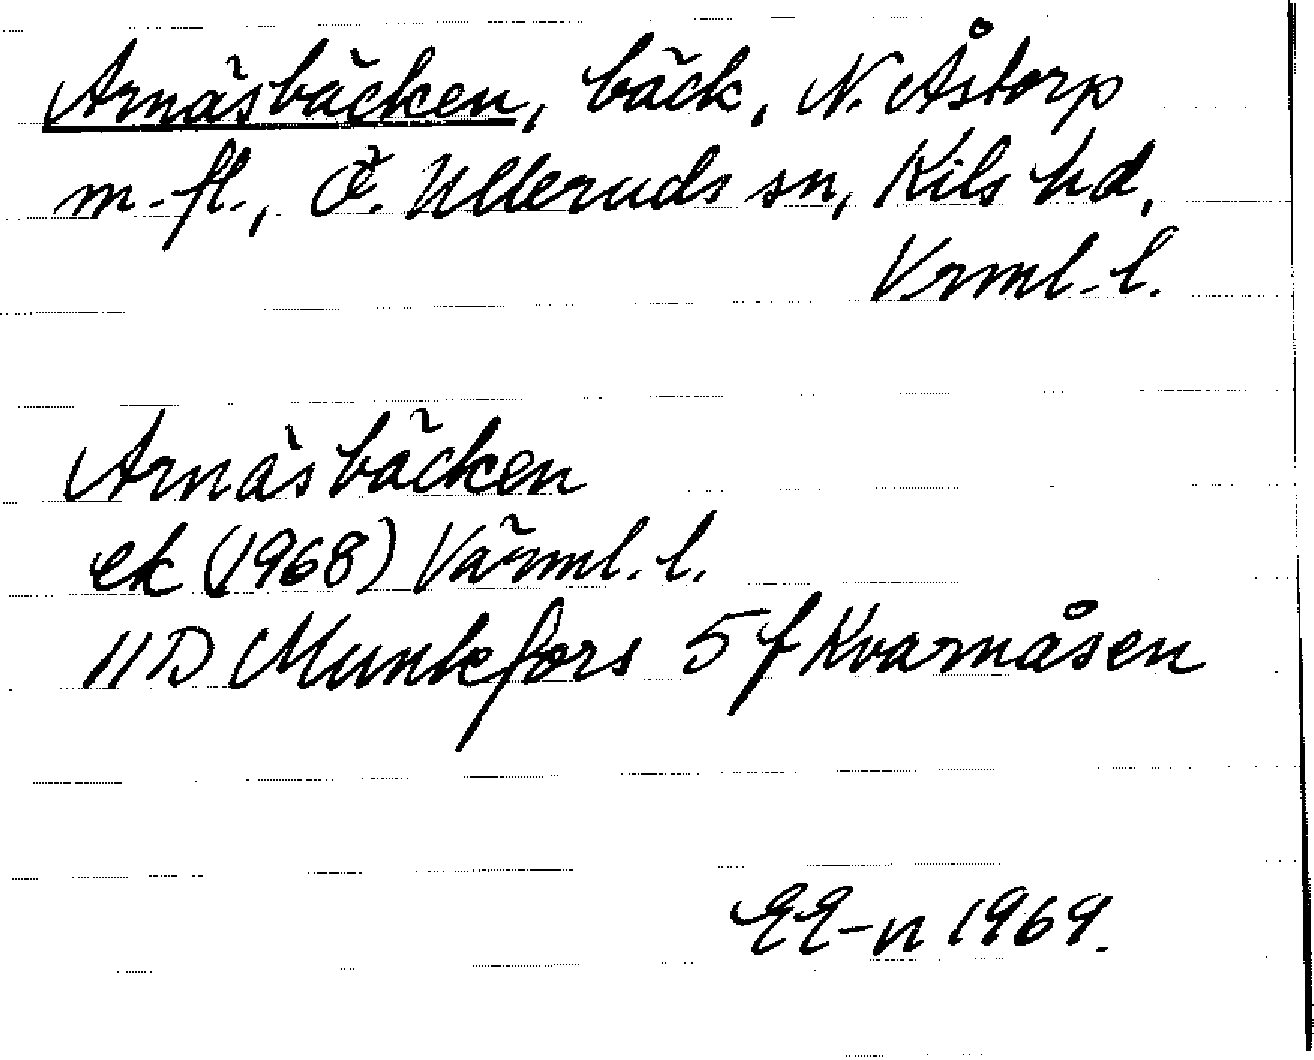 Arnäsbäcken, bäck, N. Åstorp
m. fl., Ö. Ulleruds sn, Kils hd,
Vrml. l.
Arnäsbäcken
ek (1968) Värml. l.
11D Munkfors 5f Kvarnåsen
EE-n 1969.